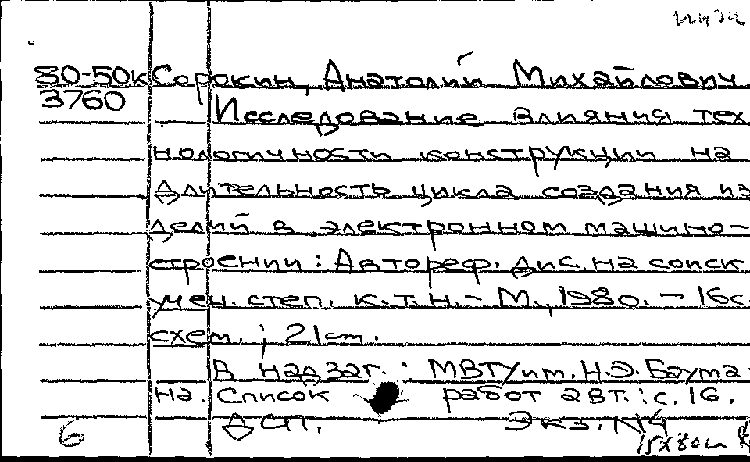 80-50к Сорокин, Анатолий Михайлович
3760 Исследование влияния тех
нологичности конструкции на
длительность цикла создания из
делий в электронном машино-
строении: Автореф. дис. на соиск
учен. степ. к.т.н. - М., 1980. - 16с.
схем.; 21см.
В надзаг.: МВТУ им. Н.Э. Баума-
на. Список работ авт.: с. 16.
6 ДСП. Экз. №4